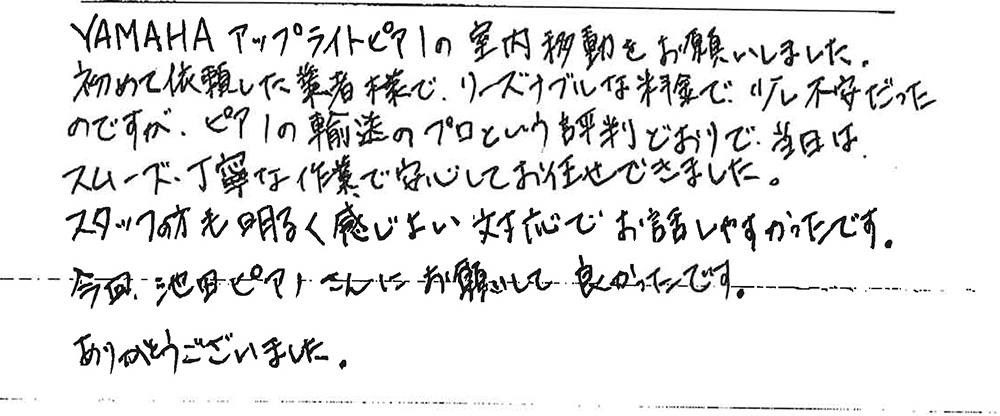 YAMAHA アップライトピアノの室内移動をお願いしました。
初めて依頼した業者様で、リーズナブルな料金で、少し不安だった
のですが、ピアノの輸送のプロという評判どおりで、当日は、
スムーズ、丁寧な作業で安心してお任せできました。
スタッフの方も明るく感じよい対応でお話しやすかったです。
今回、池田ピアノさんにお願いして良かったです。
ありがとうございました。